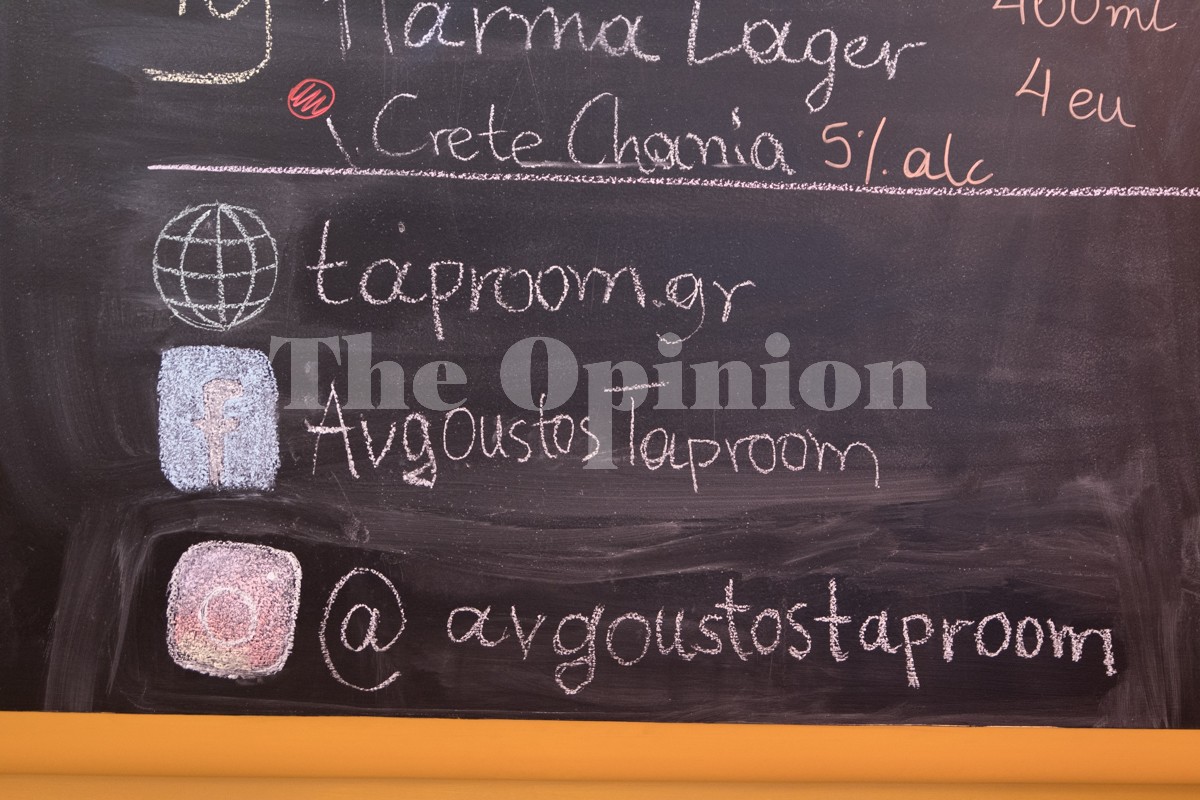 Harma Lager 400ml
4 eu
Crete Chania 5% alc
taproom.gr
The Opinion
f Avgoustos Taproom
@avgoustostaproom